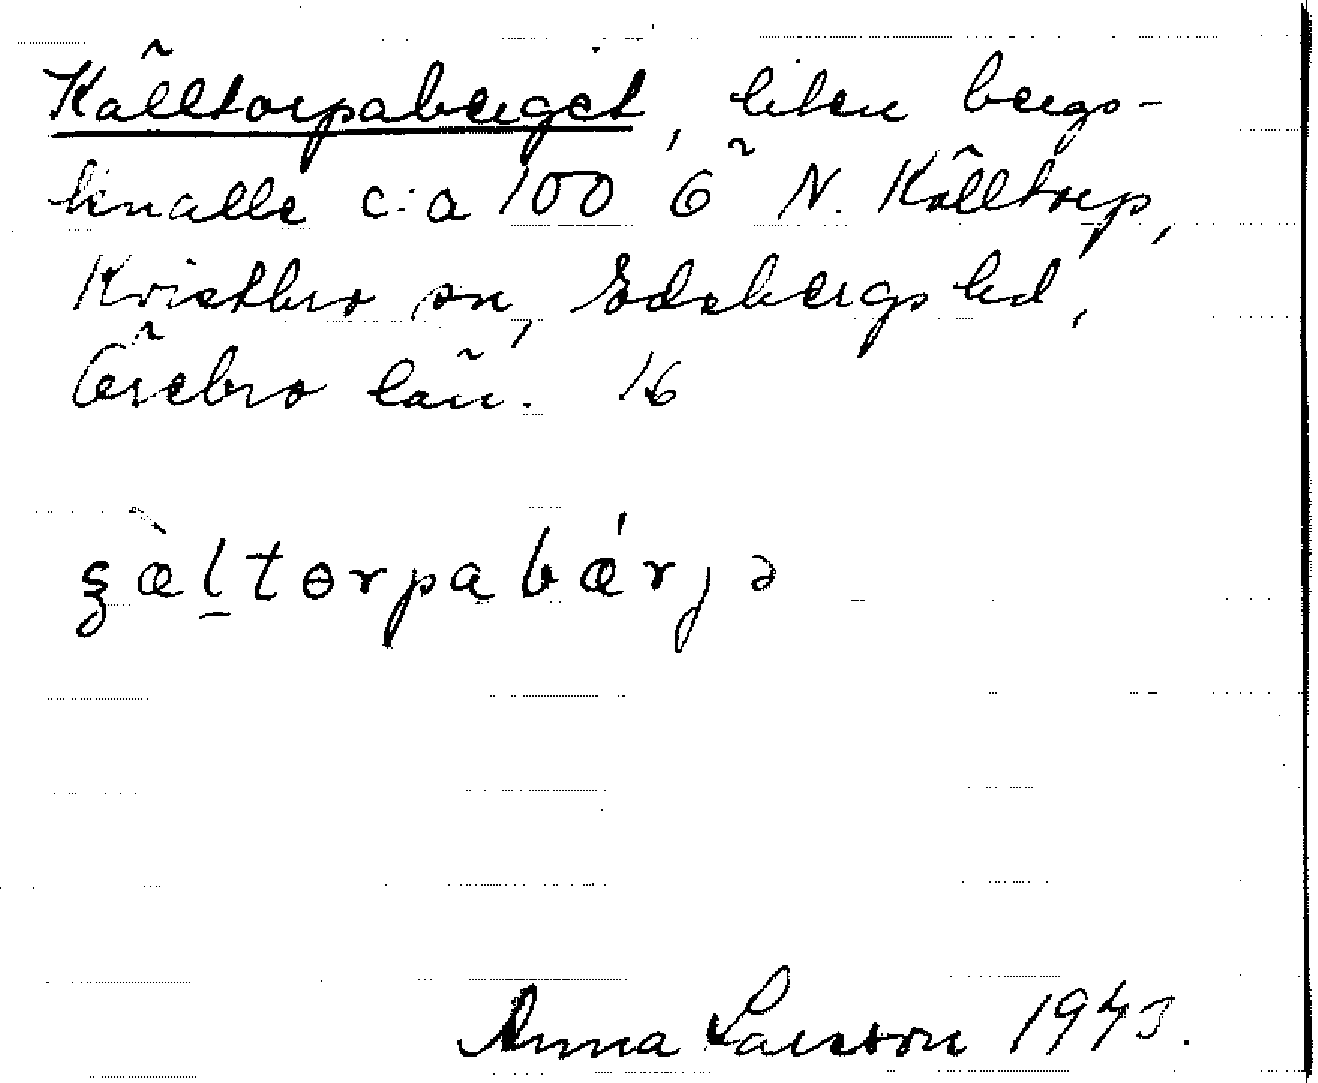 Källtorpaberget, liten bergs-
knalle c:a 100 ö N. Källtorp,
Kvistbro sn, Edsbergs hd,
Örebro län. 16
ʂæ̀ḻtɵrpabǽrjə
Anna Larsson 1943.